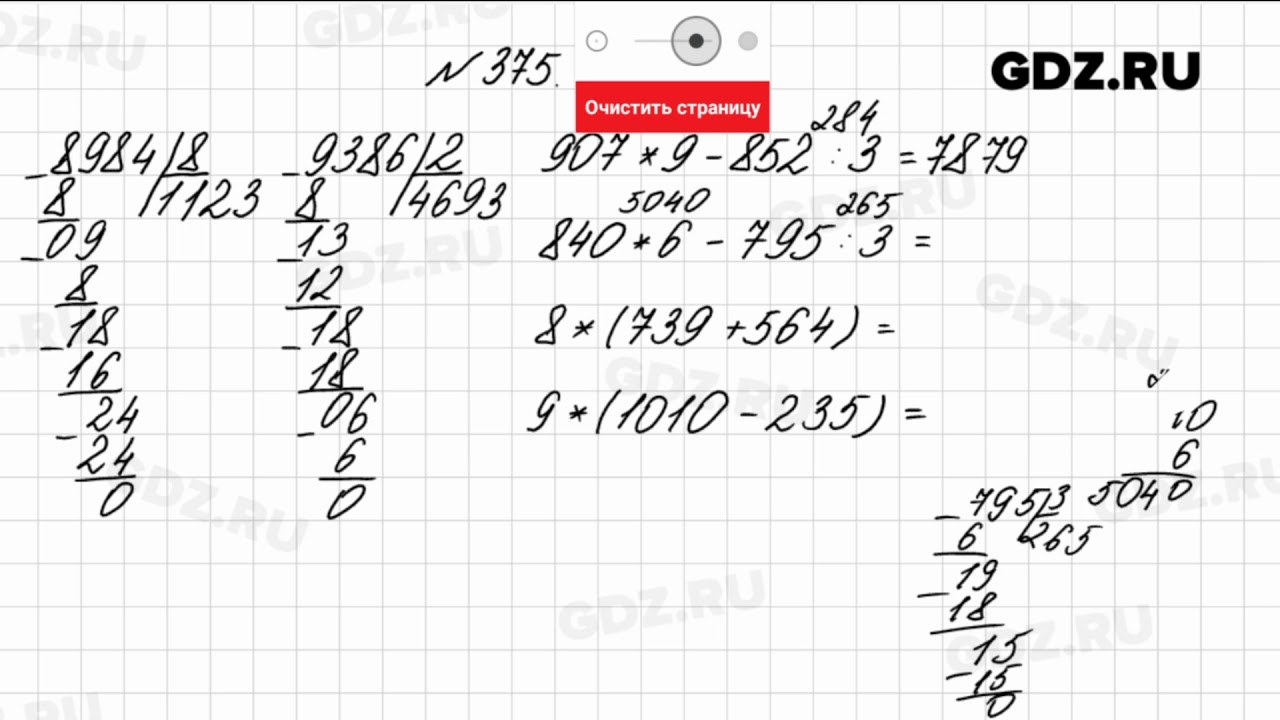 № 375.
GDZ.RU
Очистить страницу
8984 | 8
8 1123
09
8
18
16
24
24
0
9386 | 2
8 4693
13
12
18
18
06
6
0
284
907 * 9 - 852 : 3 = 7879
5040 265
840 * 6 - 795 : 3 =
8 * (739 + 564) =
9 * (1010 - 235) =
6
5040
795 | 3
6 265
19
18
15
15
0